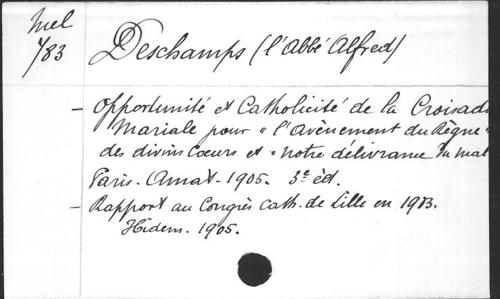 Mel
/83
Deschamps (l'Abbé Alfred)
- Opportunité et Catholicité de la Croisade
Mariale pour "l'avènement du Règne"
des divins Cœurs et "notre délivrance du mal
Paris. Amat. 1905. 3e éd.
- Rapport au Congrès cath. de Lille en 1903.
Hidem. 1905.